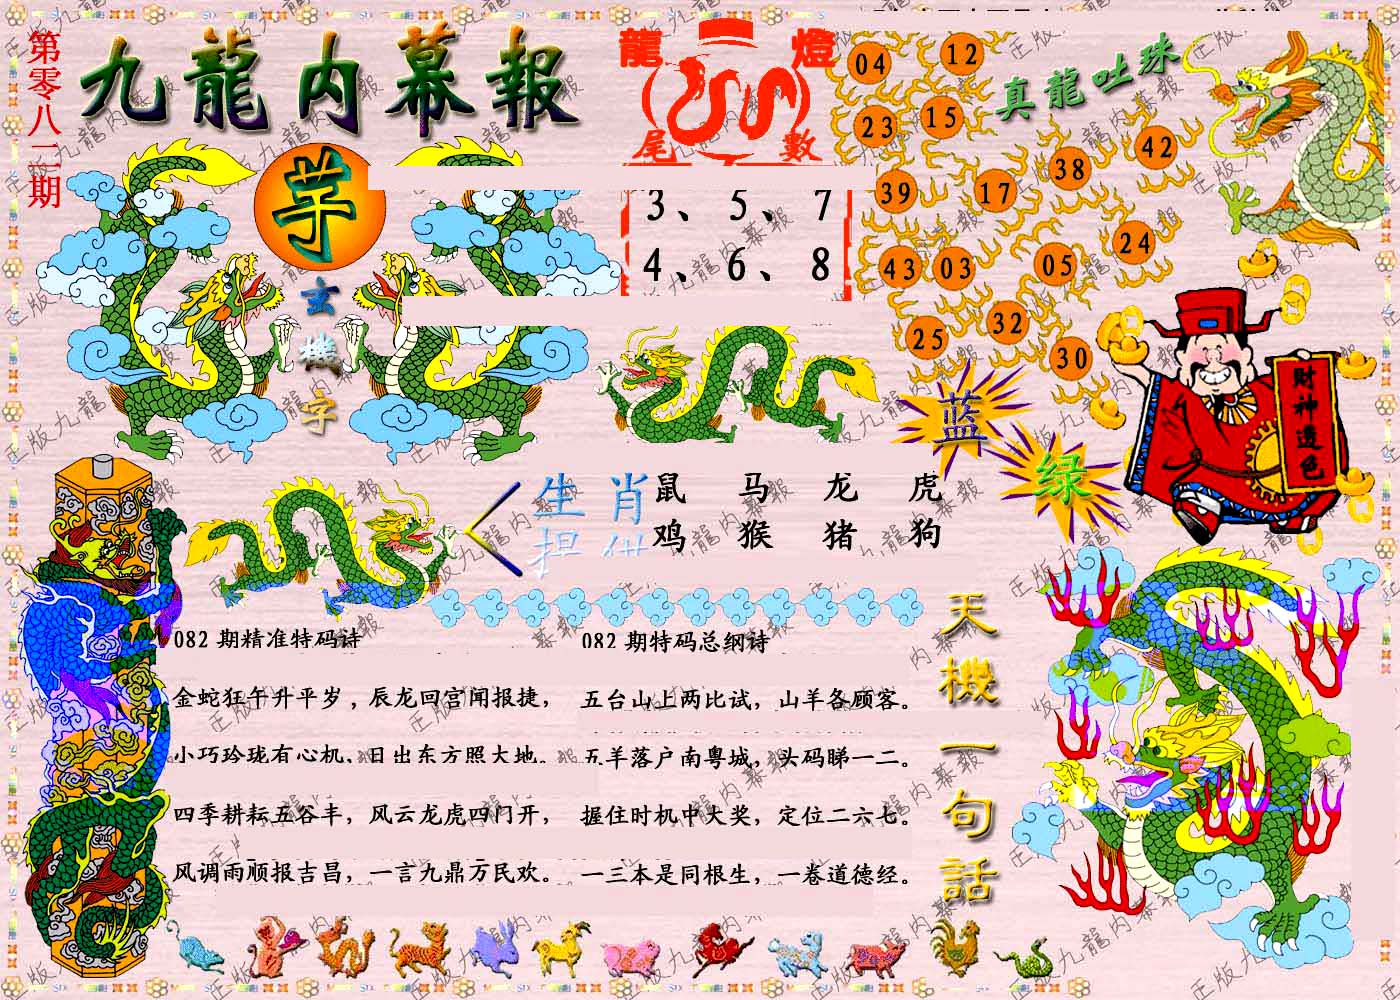 第零八二期
九龍内幕報
龍燈
尾數
3、5、7
4、6、8
真龍吐珠
04
12
23
15
38
42
39
17
24
43
03
05
25
32
30
芓
玄機字
财神透色
蓝
绿
生肖
鼠 马 龙 虎
鸡 猴 猪 狗
082期精准特码诗
金蛇狂午升平岁，辰龙回宫闻报捷，
小巧玲珑有心机，日出东方照大地。
四季耕耘五谷丰，风云龙虎四门开，
风调雨顺报吉昌，一言九鼎万民欢。
082期特码总纲诗
五台山上两比试，山羊各顾客。
五羊落户南粤城，头码睇一二。
握住时机中大奖，定位二六七。
一三本是同根生，一卷道德经。
天機一句話
正版九龍内幕報